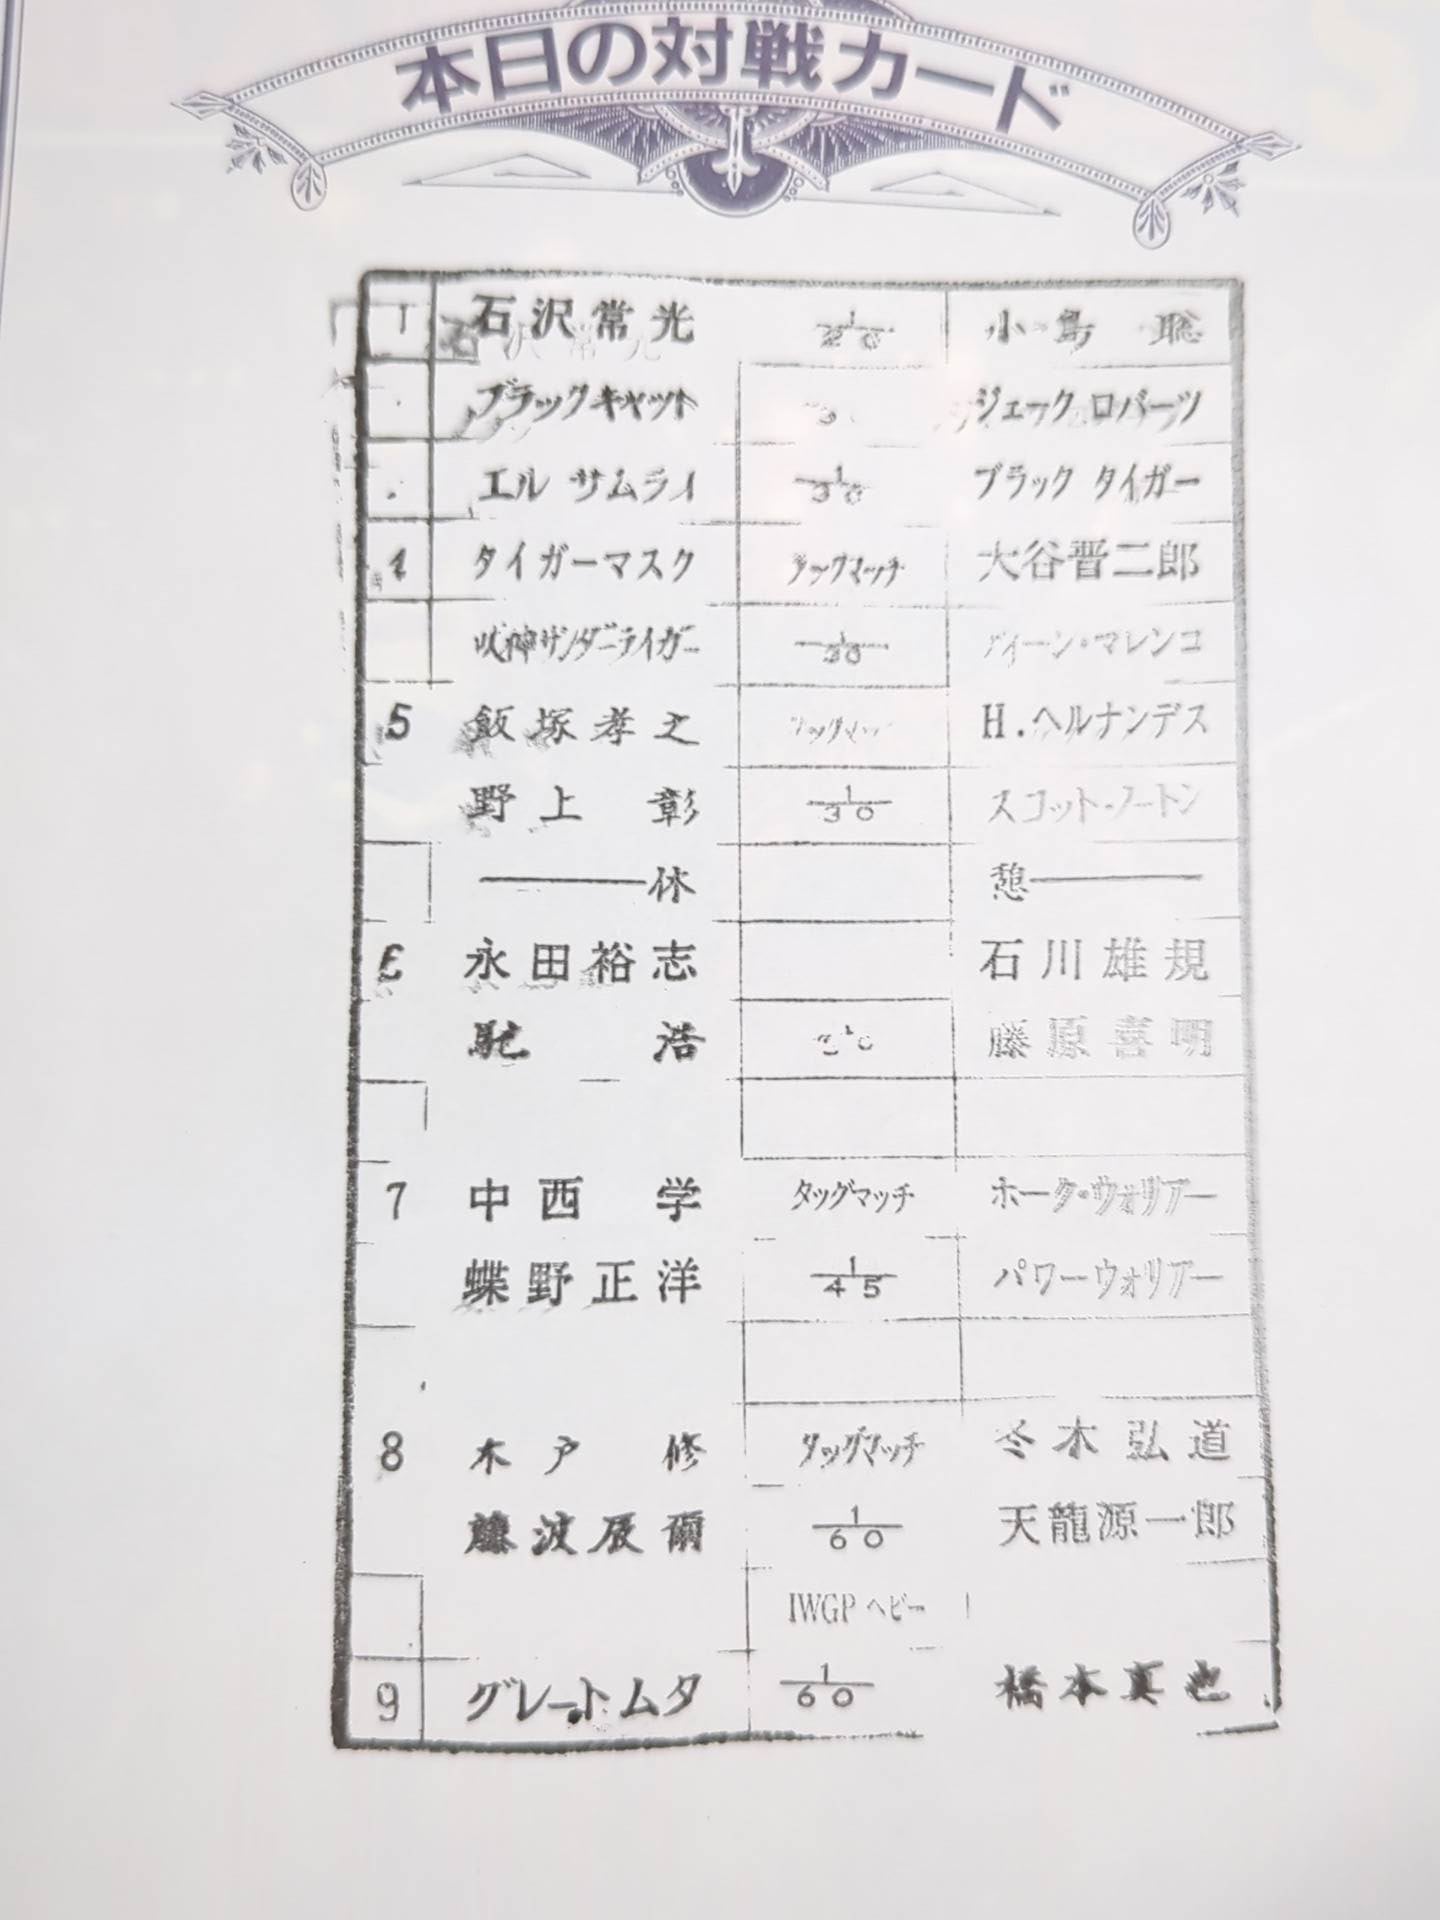 本日の対戦カード
1 石沢常光 1/20 小島 聡
ブラックキャット ジェーク ロバーツ
エル サムライ 1/30 ブラック タイガー
4 タイガーマスク タッグマッチ 大谷晋二郎
獣神サンダーライガー 1/30 ディーン・マレンコ
5 飯塚孝之 タッグマッチ H.ヘルナンデス
野上 彰 1/30 スコット・ノートン
休 憩
6 永田裕志 石川雄規
馳 浩 1/30 藤原喜明
7 中西 学 タッグマッチ ホーク・ウォリアー
蝶野正洋 1/45 パワーウォリアー
8 木戸 修 タッグマッチ 冬木弘道
藤波辰爾 1/60 天龍源一郎
IWGP ヘビー
9 グレートムタ 1/60 橋本真也